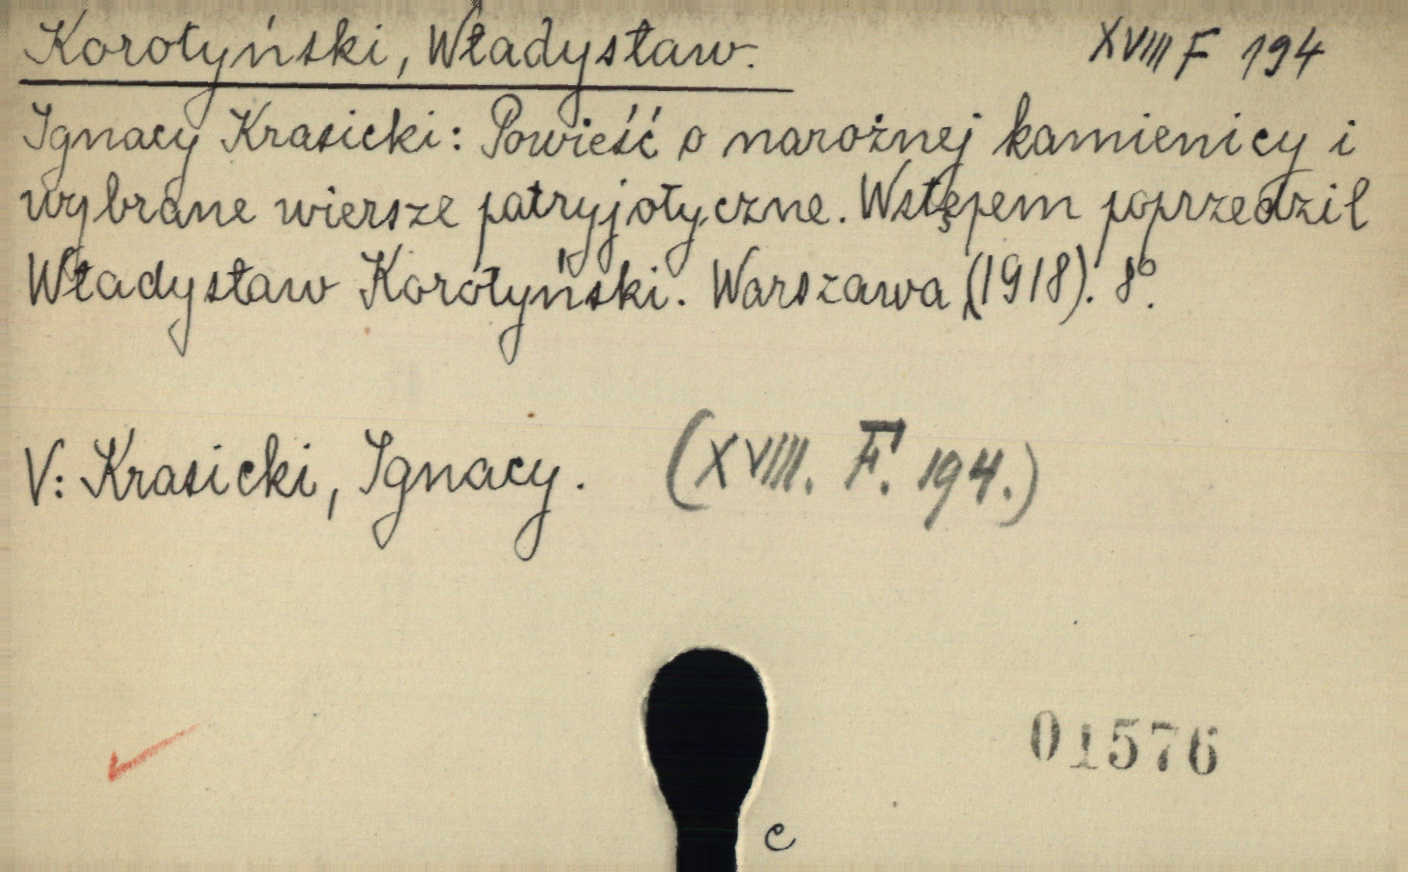 Korotyński, Władysław.
XVIII F 194
Ignacy Krasicki: Powieść o narożnej kamienicy i
wybrane wiersze patryjotyczne. Wstępem poprzedził
Władysław Korotyński. Warszawa (1918). 8º.
V: Krasicki, Ignacy. (XVIII. F. 194.)
01576
c